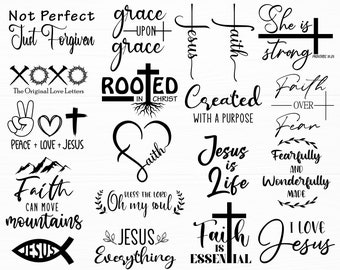 Not Perfect
Just Forgiven
grace
UPON
grace
Jesus
faith
She is
strong
PROVERBS 31:25
XOXO
The Original Love Letters
ROOTED
IN CHRIST
Created
WITH A PURPOSE
Faith
OVER
Fear
PEACE + LOVE + JESUS
Faith
Jesus
is
Life
Fearfully
AND
Wonderfully
MADE
Faith
CAN MOVE
mountains
BLESS THE LORD
Oh my soul
JESUS
JESUS
Everything
Faith
IS
ESSENTIAL
I LOVE
Jesus